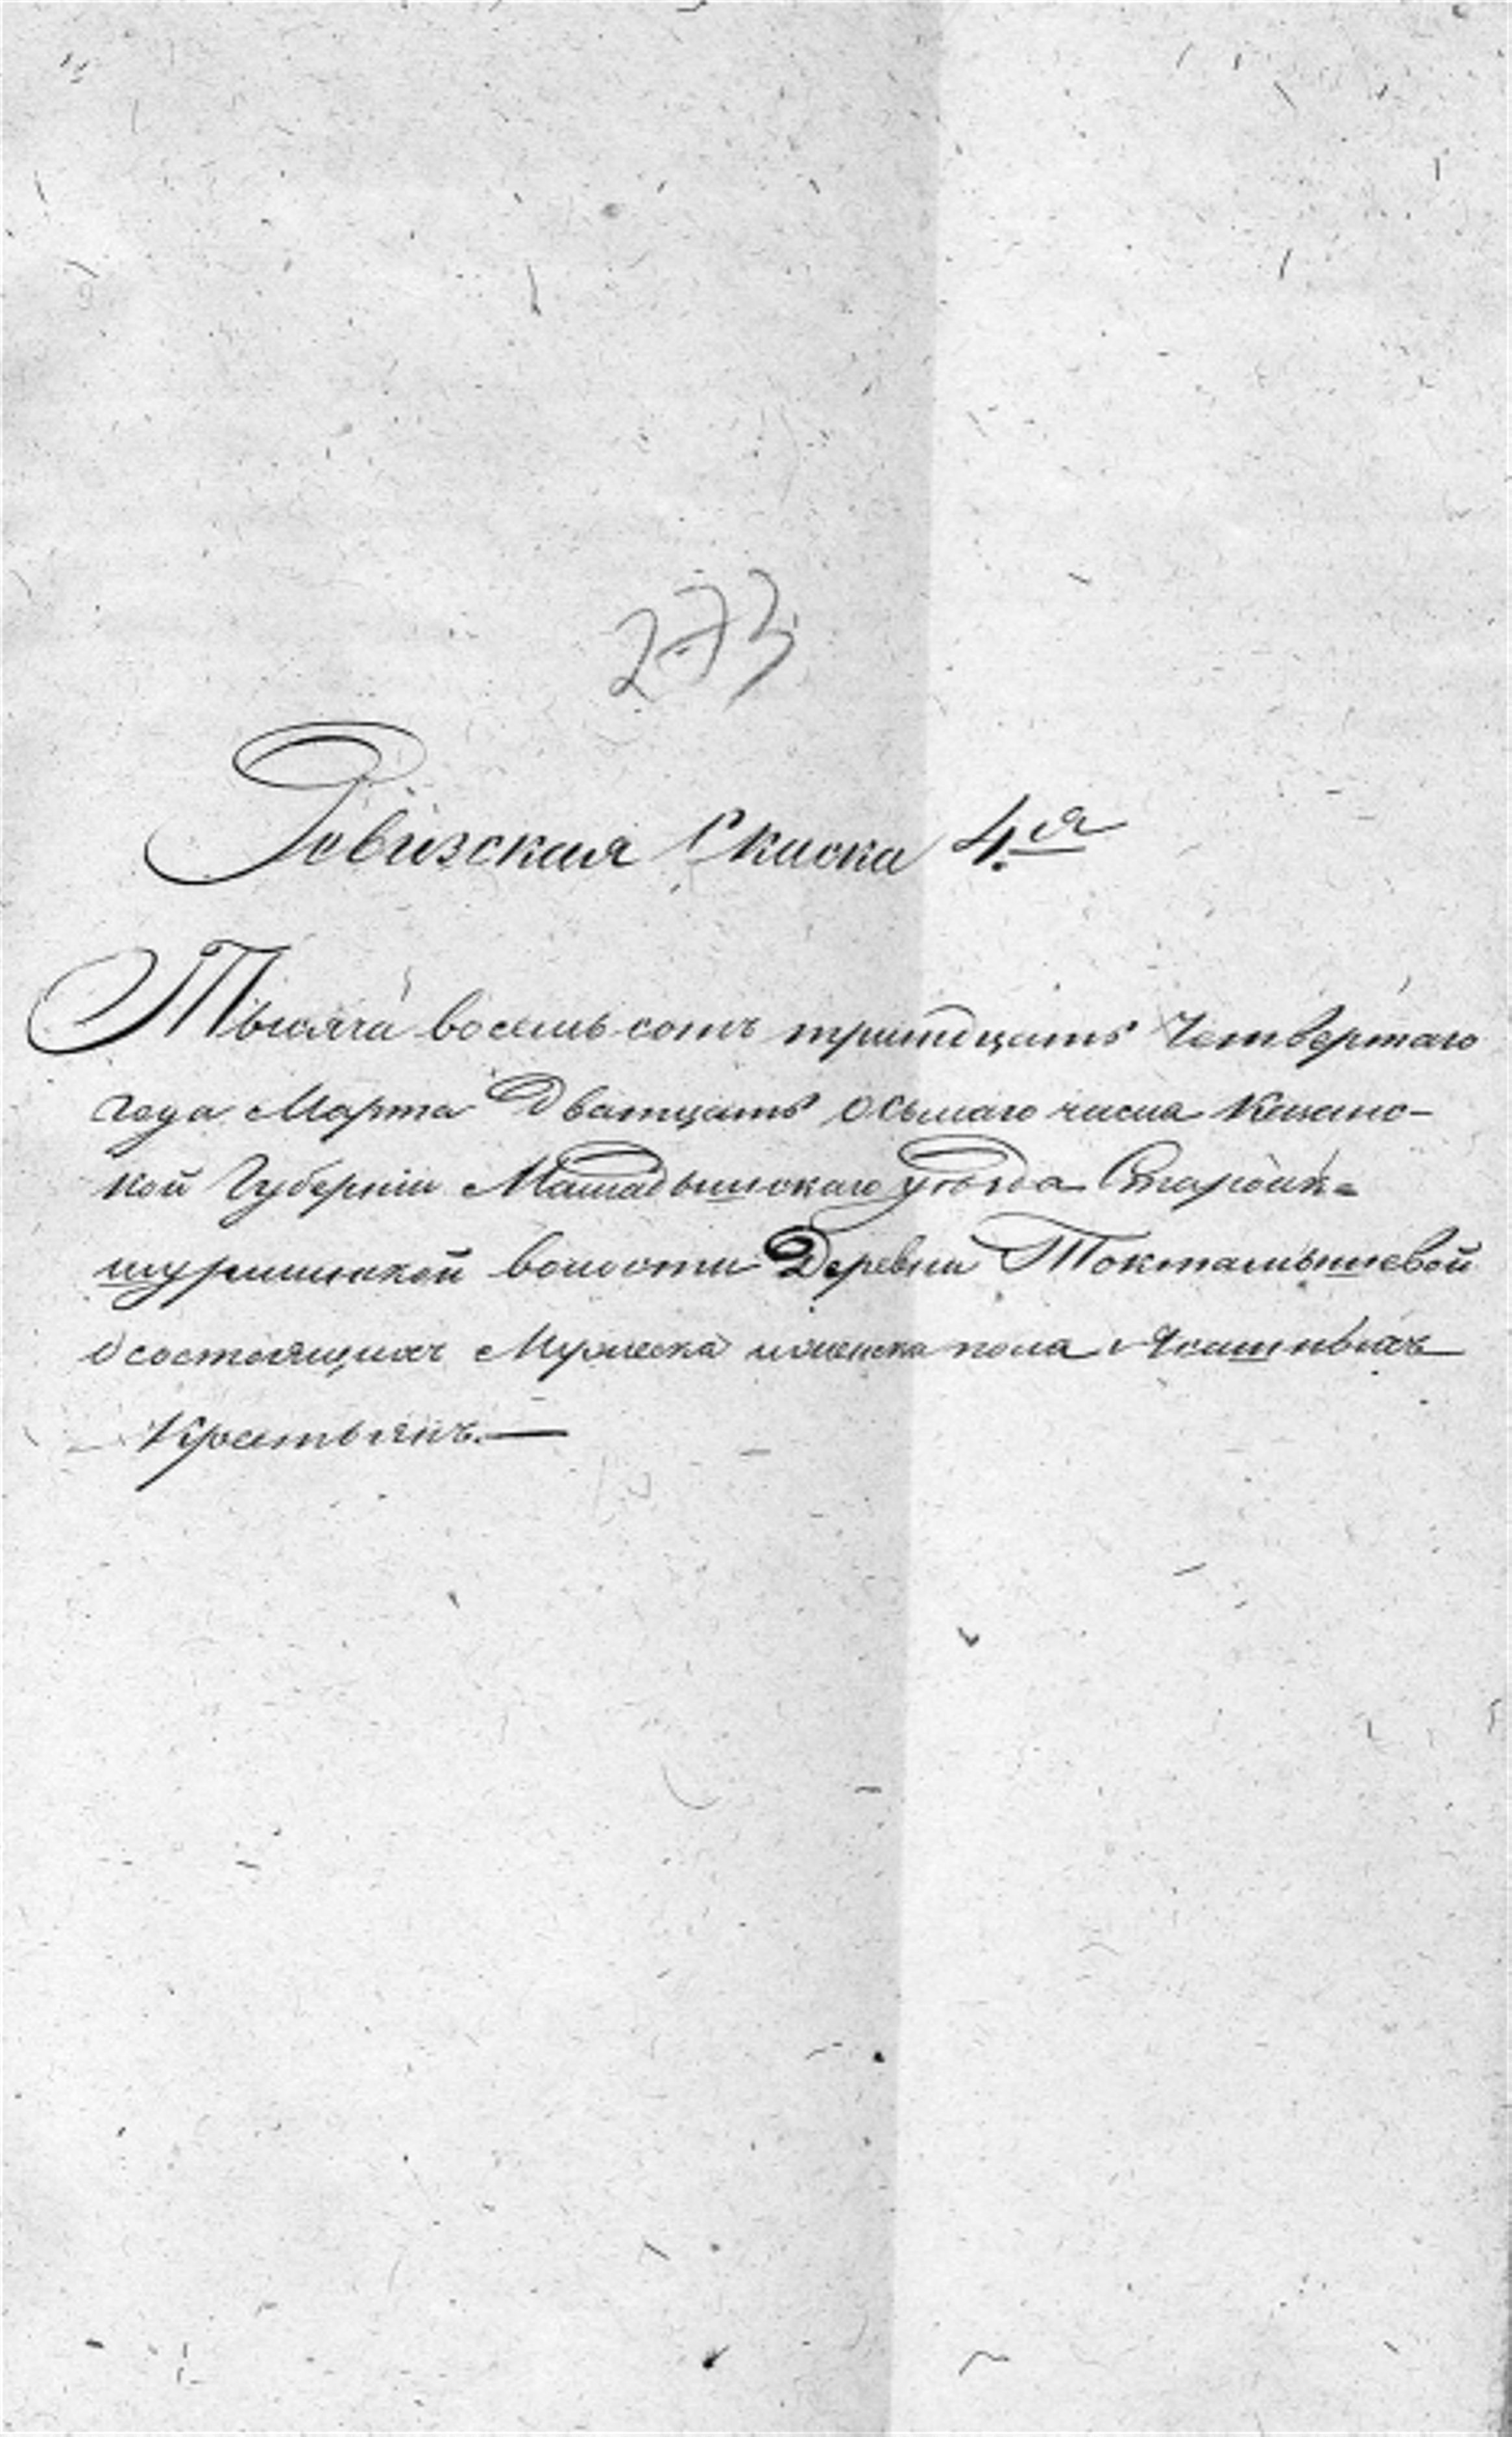 273
Ревизская Скаска 4.я
Тысяча восемь сотъ тритцать четвертаго
года Марта Дватцать осьмаго числа Казанс-
кой Губерніи Мамадышскаго уѣзда Старойк=
шурминской волости Деревни Токтамышевой
о состоящихъ Мужеска и женска пола Ясашныхъ
Крестьянъ.—